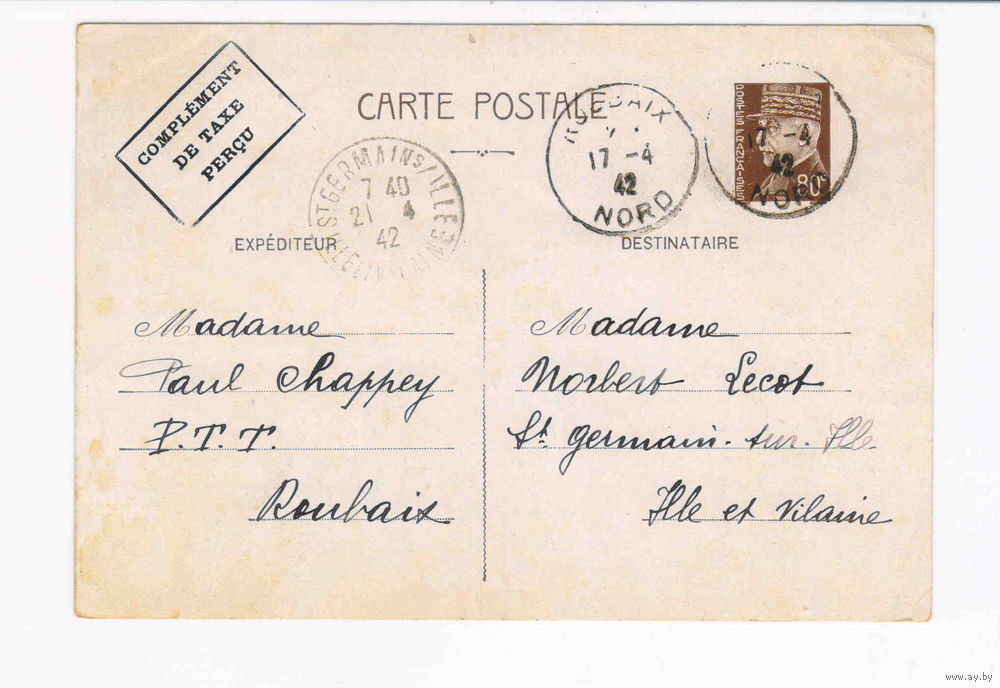 COMPLÉMENT
DE TAXE
PERÇU
CARTE POSTALE
ROUBAIX
17 -4
42
NORD
POSTES FRANÇAISES
80c
17 -4
42
NORD
ST GERMAIN S/ILLE
7 40
21 4
42
ILLE ET VILAINE
EXPÉDITEUR
Madame
Paul Chappey
P.T.T.
Roubaix
DESTINATAIRE
Madame
Norbert Lecot
St Germain-sur-Ille
Ille et Vilaine
www.ay.by